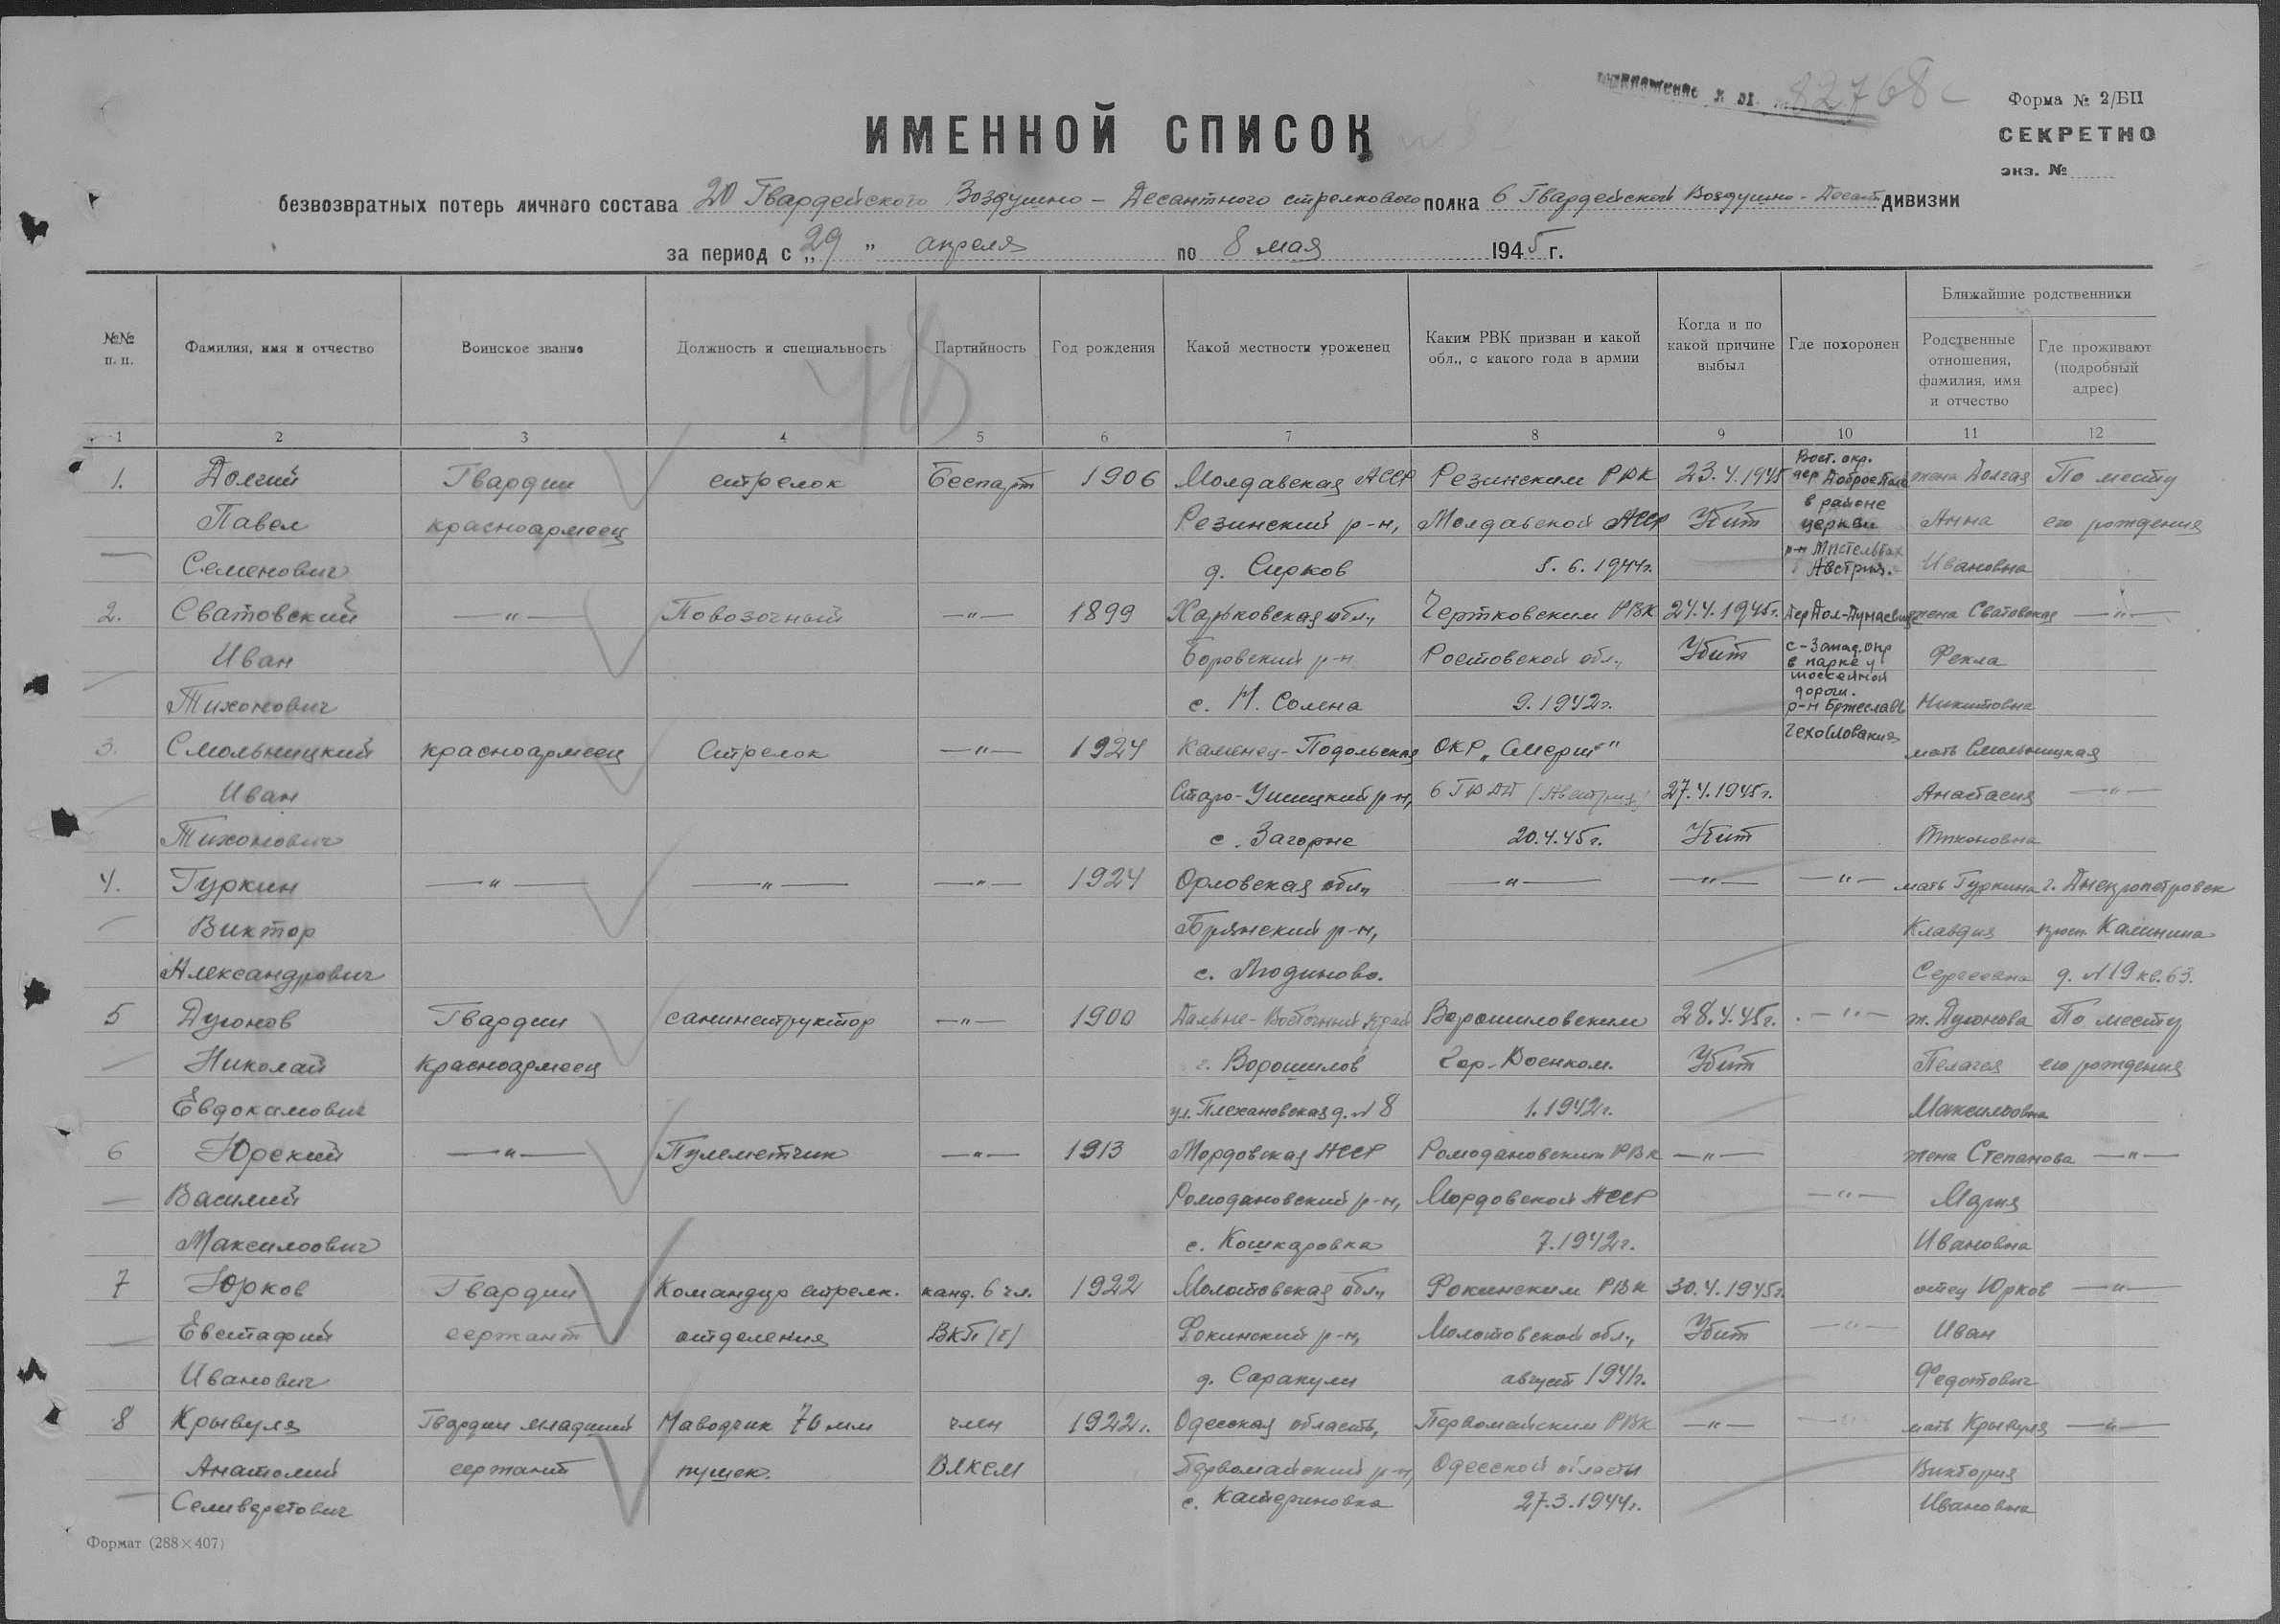 приложение к вх. 82768с
Форма № 2/БП
СЕКРЕТНО
экз. №
ИМЕННОЙ СПИСОК
безвозвратных потерь личного состава 20 Гвардейского Воздушно - Десантного стрелкового полка 6 Гвардейской Воздушно - Десант. дивизии
за период с „29" апреля по 8 мая 1945 г.
№№ п. п. | Фамилия, имя и отчество | Воинское звание | Должность и специальность | Партийность | Год рождения | Какой местности уроженец | Каким РВК призван и какой обл., с какого года в армии | Когда и по какой причине выбыл | Где похоронен | Ближайшие родственники
Родственные отношения, фамилия, имя и отчество | Где проживают (подробный адрес)
1 2 3 4 5 6 7 8 9 10 11 12
48
1. Долгий Гвардии стрелок Беспарт 1906 Молдавская АССР Резинским РВК 23.4.1945 Вост. окр. дер Доброе Поле жена Долгая По месту
Павел красноармеец Резинский р-н, Молдавской АССР Убит в районе церкви Анна его рождения
Семенович д. Сирков 5.6.1944г. р-н Мистельбах Австрия. Ивановна
2. Сватовский —"— Повозочный —"— 1899 Харьковская обл., Чертковским РВК 24.4.1945г. дер Дол-Дунаевице жена Сватовская —"—
Иван Боровский р-н Ростовской обл., Убит с-запад. окр в парке у шоссейной Фекла
Тихонович с. Н. Солена 9.1942г. дороги. р-н Бржеславь Никитовна
3. Смольницкий красноармеец Стрелок —"— 1924 Каменец-Подольская ОКР „Смерш" Чехословакия мать Смольницкая
Иван Старо-Ушицкий р-н, 6 ГВДД (Австрия) 27.4.1945г. Анастасия —"—
Тихонович с. Загорне 20.4.45г. Убит
4. Гуркин —"— —"— —"— 1924 Орловская обл., —"— —"— —"— мать Гуркина г. Днепропетровск
Виктор Брянский р-н, Клавдия просп. Калинина
Александрович с. Людиново. Сергеевна д. №19 кв. 63.
5 Дугонов Гвардии санинструктор —"— 1900 Дальне-Восточный край Ворошиловским 28.4.45г. —"— ж. Дугонова По месту
Николай Красноармеец г. Ворошилов Гор-Военком. Убит Пелагея его рождения
Евдокамович ул. Плехановская д. №8 1.1942г. Максимовна
6 Юрский —"— Пулеметчик —"— 1913 Мордовская АССР Ромодановским РВК —"— жена Степанова —"—
Василий Ромодановский р-н, Мордовской АССР —"— Мария
Максимович с. Кошкаровка 7.1942г. Ивановна
7 Юрков Гвардии Командир стрелк. канд. в чл. 1922 Молотовская обл., Фокинским РВК 30.4.1945г. отец Юрков —"—
Евстафий сержант отделения ВКП(б) Фокинский р-н, Молотовской обл., Убит —"— Иван
Иванович д. Саракули август 1941г. Федотович
8 Крывуля Гвардии младший Наводчик 76 мм член 1922г. Одесская область, Первомайским РВК —"— —"— мать Крывуля —"—
Анатолий сержант пушек. ВЛКСМ Первомайский р-н, Одесской области Виктория
Селиверстович с. Катериновка 27.3.1944г. Ивановна
Формат (288×407)